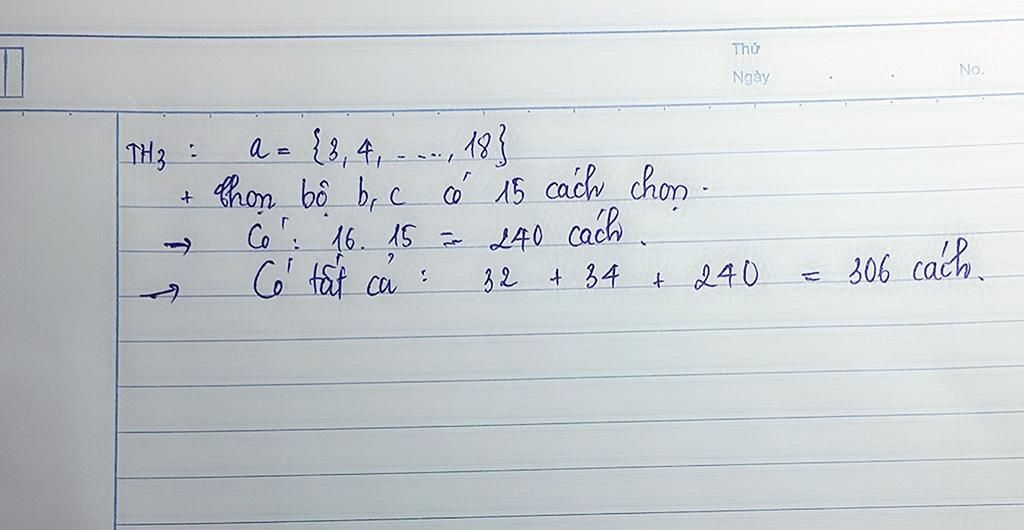 Thứ
Ngày . . No.
TH3 : a = {3, 4, ...., 18}
+ Chọn bộ b, c có 15 cách chọn.
→ Có : 16. 15 = 240 cách.
→ Có tất cả : 32 + 34 + 240 = 306 cách.